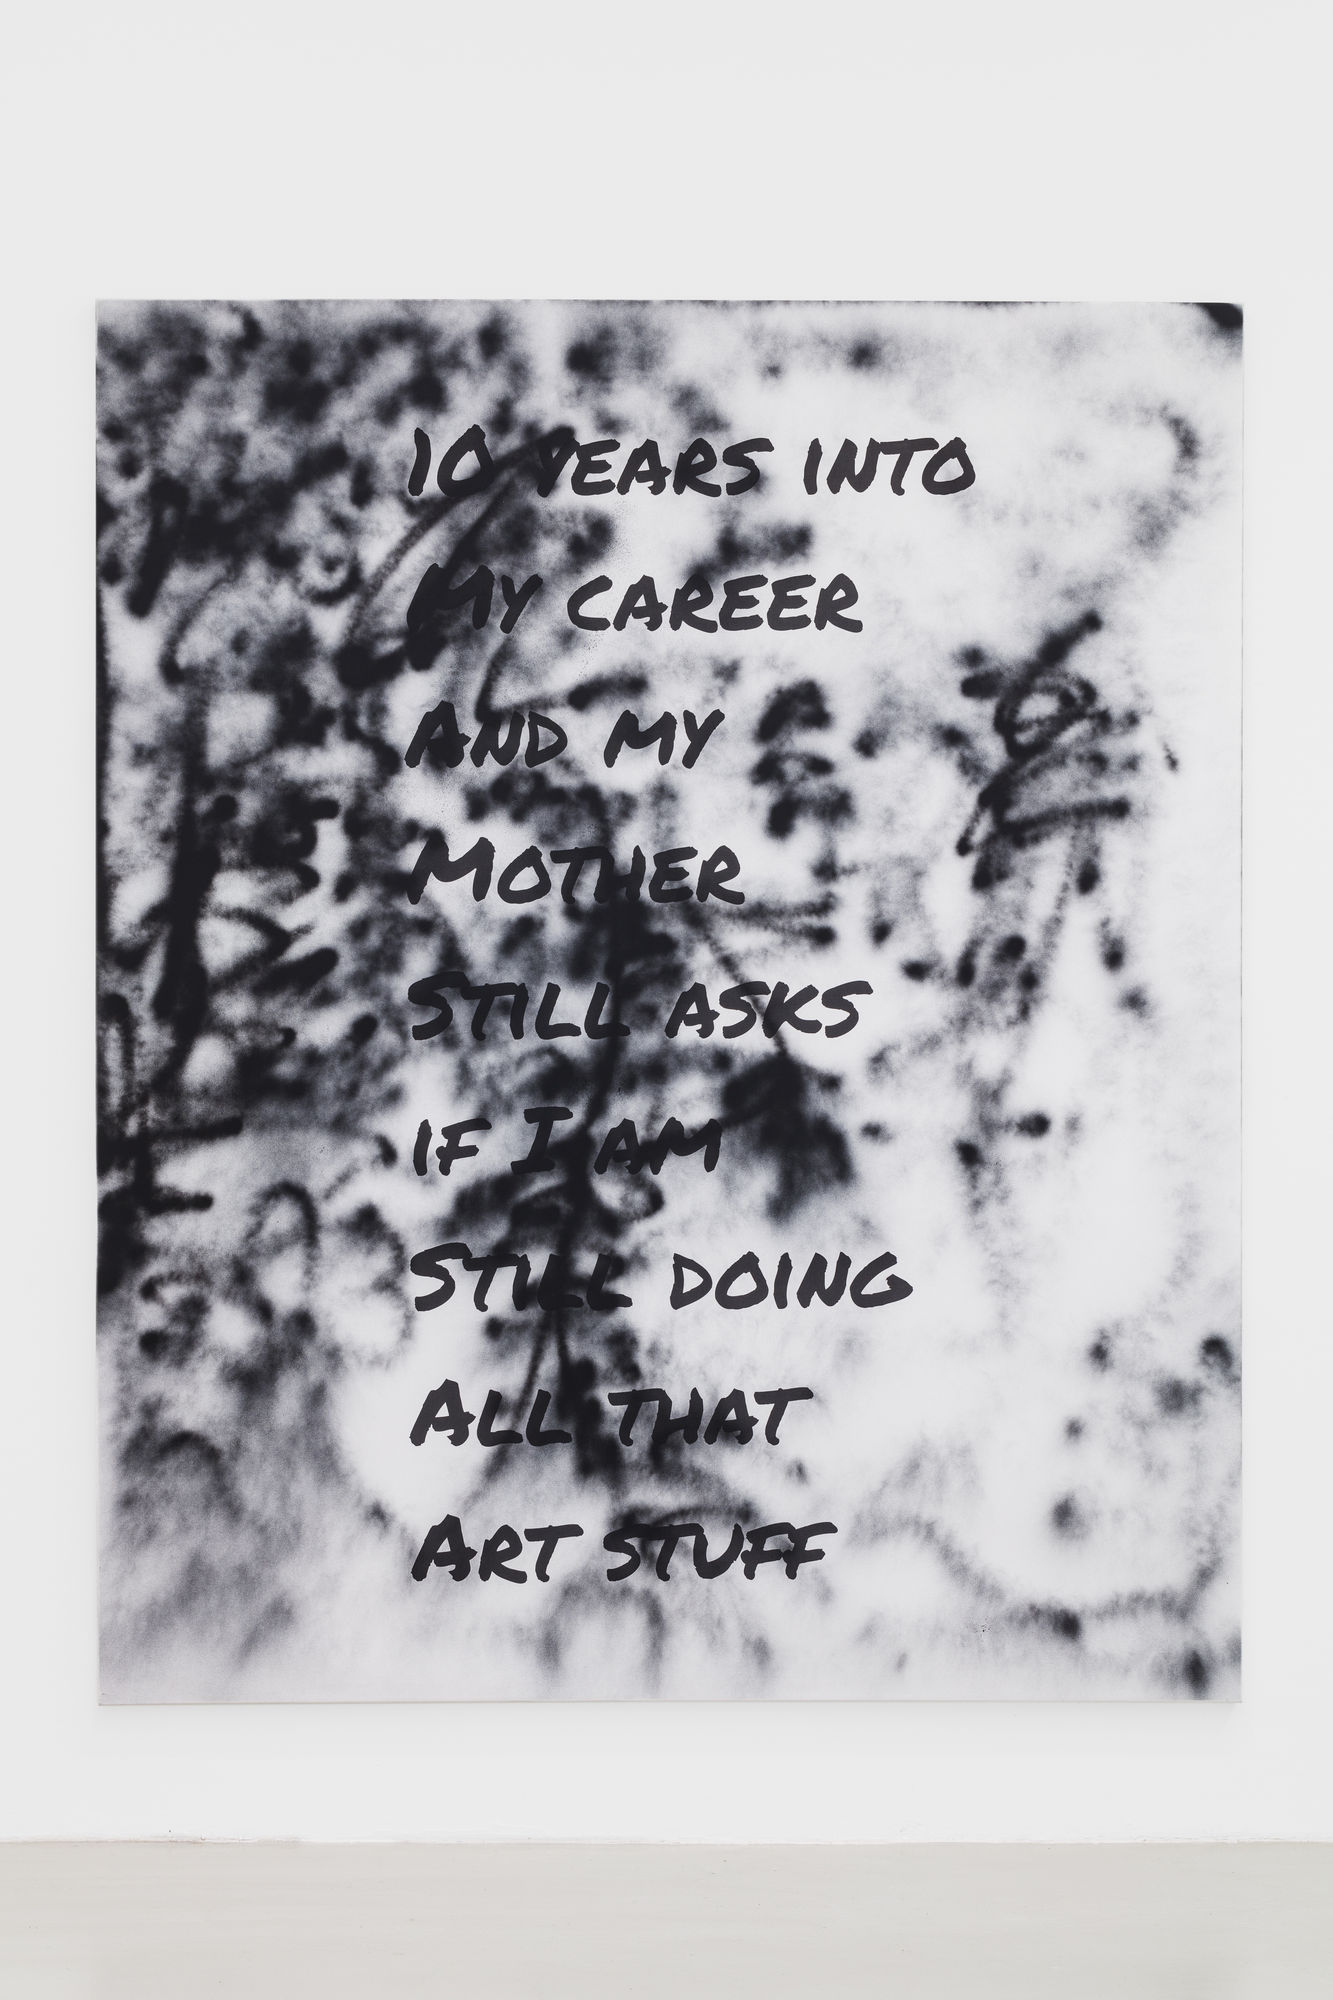 10 years into
My career
And my
Mother
Still asks
if I am
Still doing
All that
Art stuff